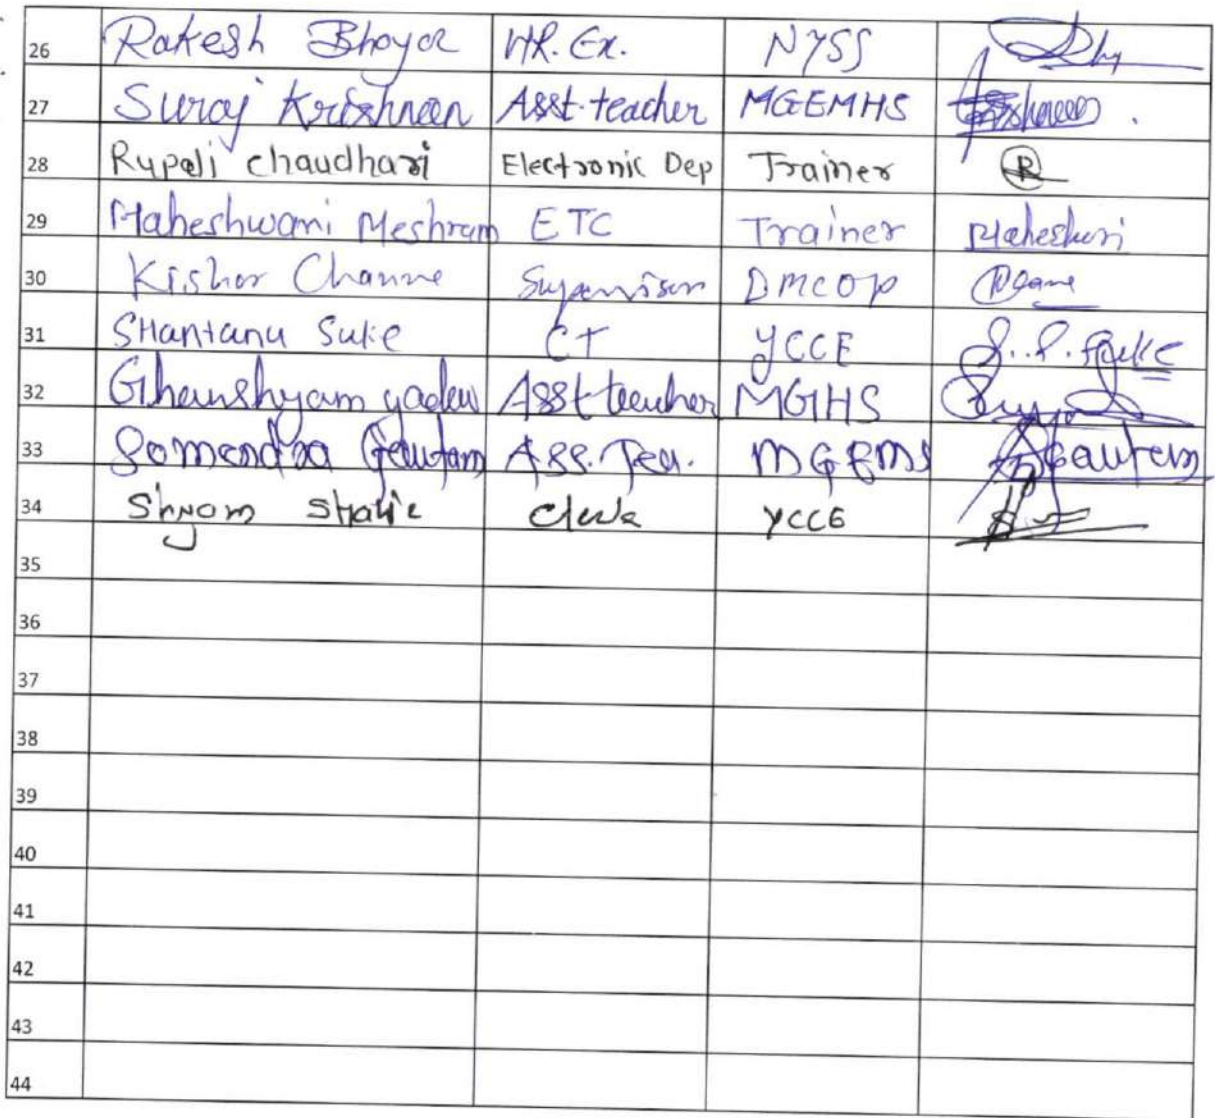 26 Rakesh Bhoyar HR. Ex. NYSS
27 Suraj Krishnan Asst. teacher MGEMHS
28 Rupali chaudhari Electronic Dep Trainer R
29 Maheshwari Meshram ETC Trainer Maheshwari
30 Kishor Channe Supervisor DMCOP
31 SHantanu Suke CT YCCE S. P. Suke
32 Ghanshyam yadav Asst teacher MGIHS
33 Somendra Gautam Ass. Tea. MGEMS Gautam
34 Shyam Clerk YCCE
35
36
37
38
39
40
41
42
43
44